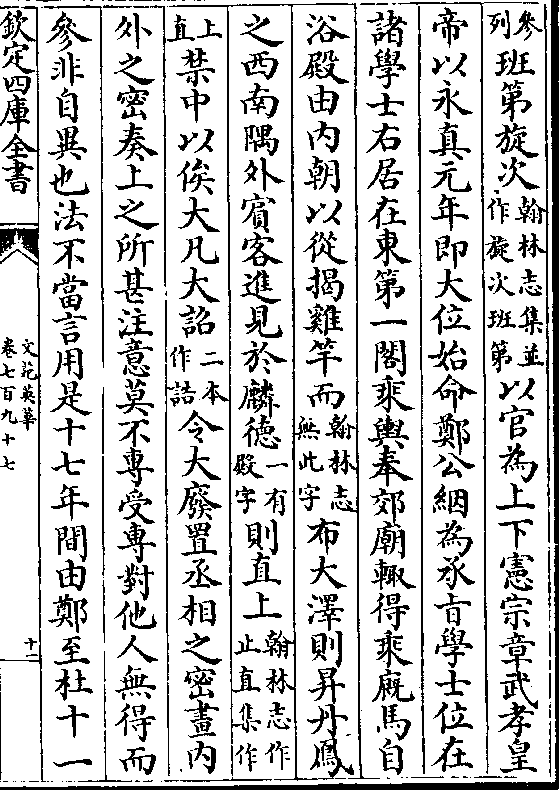 參列班第旋次翰林志集並作旋次班第以官為上下憲宗章武孝皇
帝以永真元年即大位始命鄭公絪為承旨學士位在
諸學士右居在東第一閣乘輿奉郊廟輙得乘廐馬自
浴殿由内朝以從揭雞竿而翰林志無此字布大澤則昇丹鳳
之西南隅外賓客進見於麟德一有殿字則直上翰林志作止直集作
上直禁中以俟大凡大詔二本作誥令大廢置丞相之密畫内
外之密奏上之所甚注意莫不專受專對他人無得而
參非自異也法不當言用是十七年間由鄭至杜十一
欽定四庫全書
文苑英華
卷七百九十七
十二